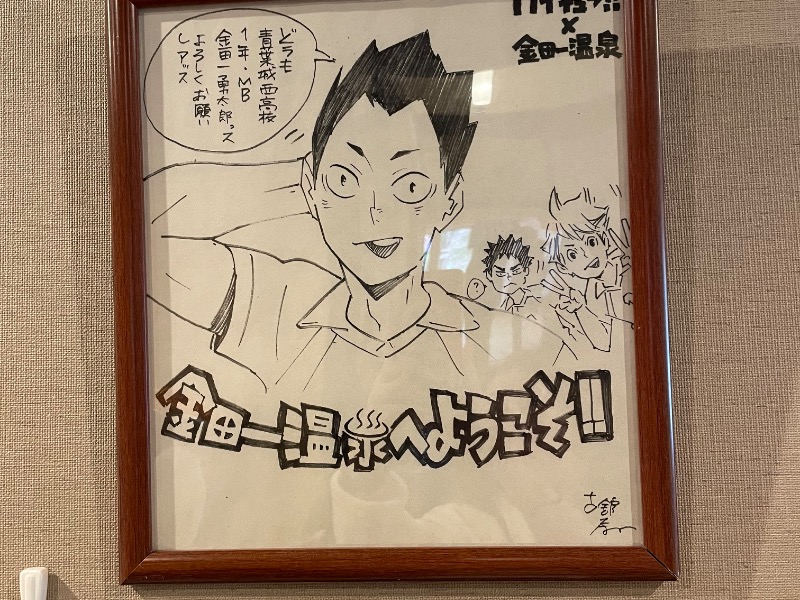 ×
金田一温泉
どうも
青葉城西高校
1年・MB
金田一勇太郎っス
よろしくお願い
しアッス
?
金田一温泉へようこそ!!
古舘春一